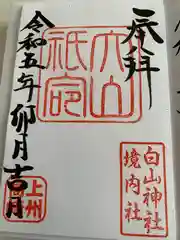 奉拝
大山
祇命
白山神社
境内社
令和五年卯月吉日
上州